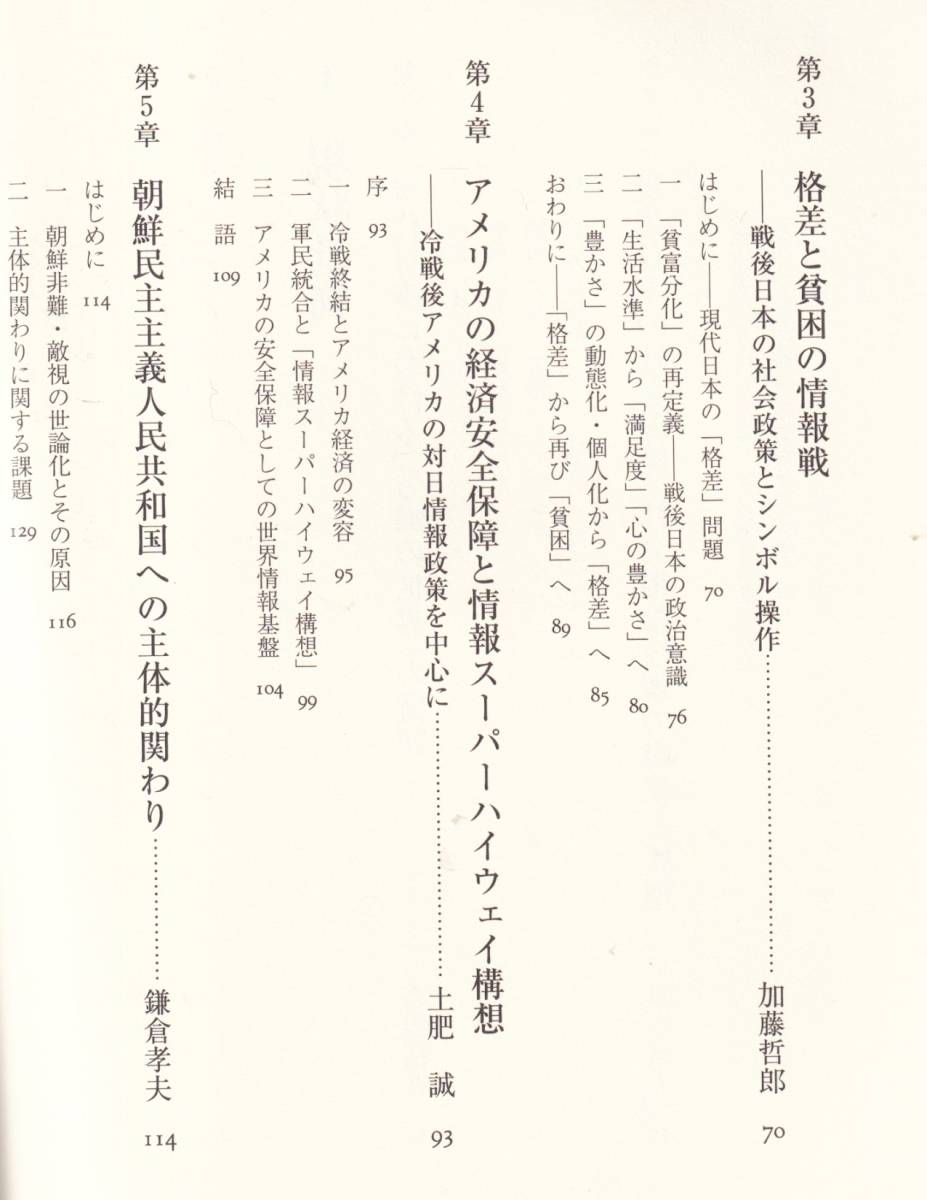 第3章　格差と貧困の情報戦
――戦後日本の社会政策とシンボル操作……………………加藤哲郎　70
はじめに――現代日本の「格差」問題　70
一　「貧富分化」の再定義――戦後日本の政治意識　76
二　「生活水準」から「満足度」「心の豊かさ」へ　80
三　「豊かさ」の動態化・個人化から「格差」へ　85
おわりに――「格差」から再び「貧困」へ　89
第4章　アメリカの経済安全保障と情報スーパーハイウェイ構想
――冷戦後アメリカの対日情報政策を中心に……………………土肥　誠　93
序　93
一　冷戦終結とアメリカ経済の変容　95
二　軍民統合と「情報スーパーハイウェイ構想」　99
三　アメリカの安全保障としての世界情報基盤　104
結　語　109
第5章　朝鮮民主主義人民共和国への主体的関わり……………鎌倉孝夫　114
はじめに　114
一　朝鮮非難・敵視の世論化とその原因　116
二　主体的関わりに関する課題　129